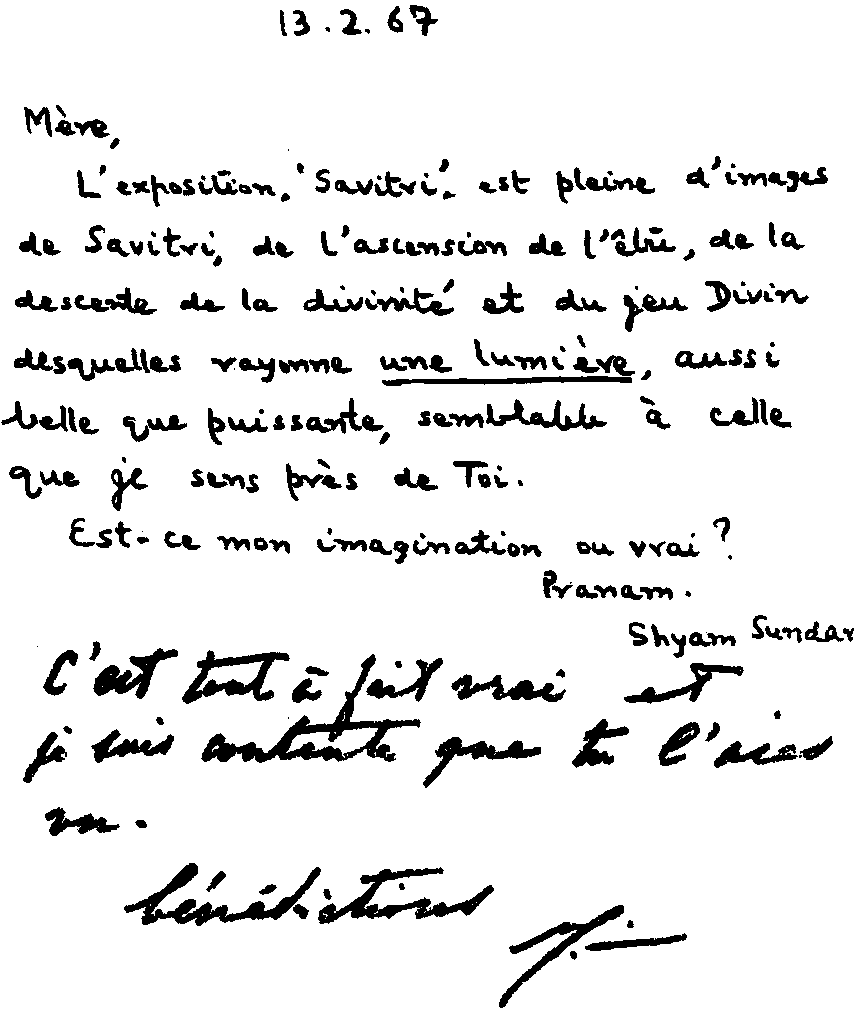 13.2.67
Mère,
L'exposition, 'Savitri', est pleine d'images
de Savitri, de l'ascension de l'être, de la
descente de la divinité et du jeu Divin
desquelles rayonne une lumière, aussi
belle que puissante, semblable à celle
que je sens près de Toi.
Est-ce mon imagination ou vrai ?
Pranam.
Shyam Sundar
C'est tout à fait vrai et
je suis contente que tu l'aies
vu.
bénédictions